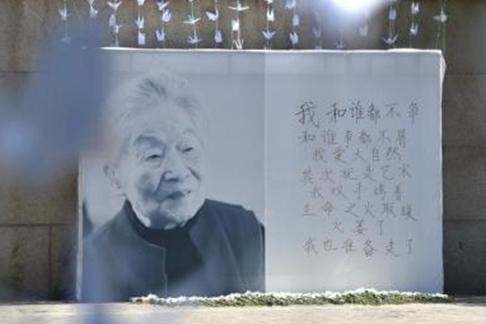 我和谁都不争
和谁争都不屑
我爱大自然
其次就是艺术
我双手烤着
生命之火取暖
火萎了
我也准备走了